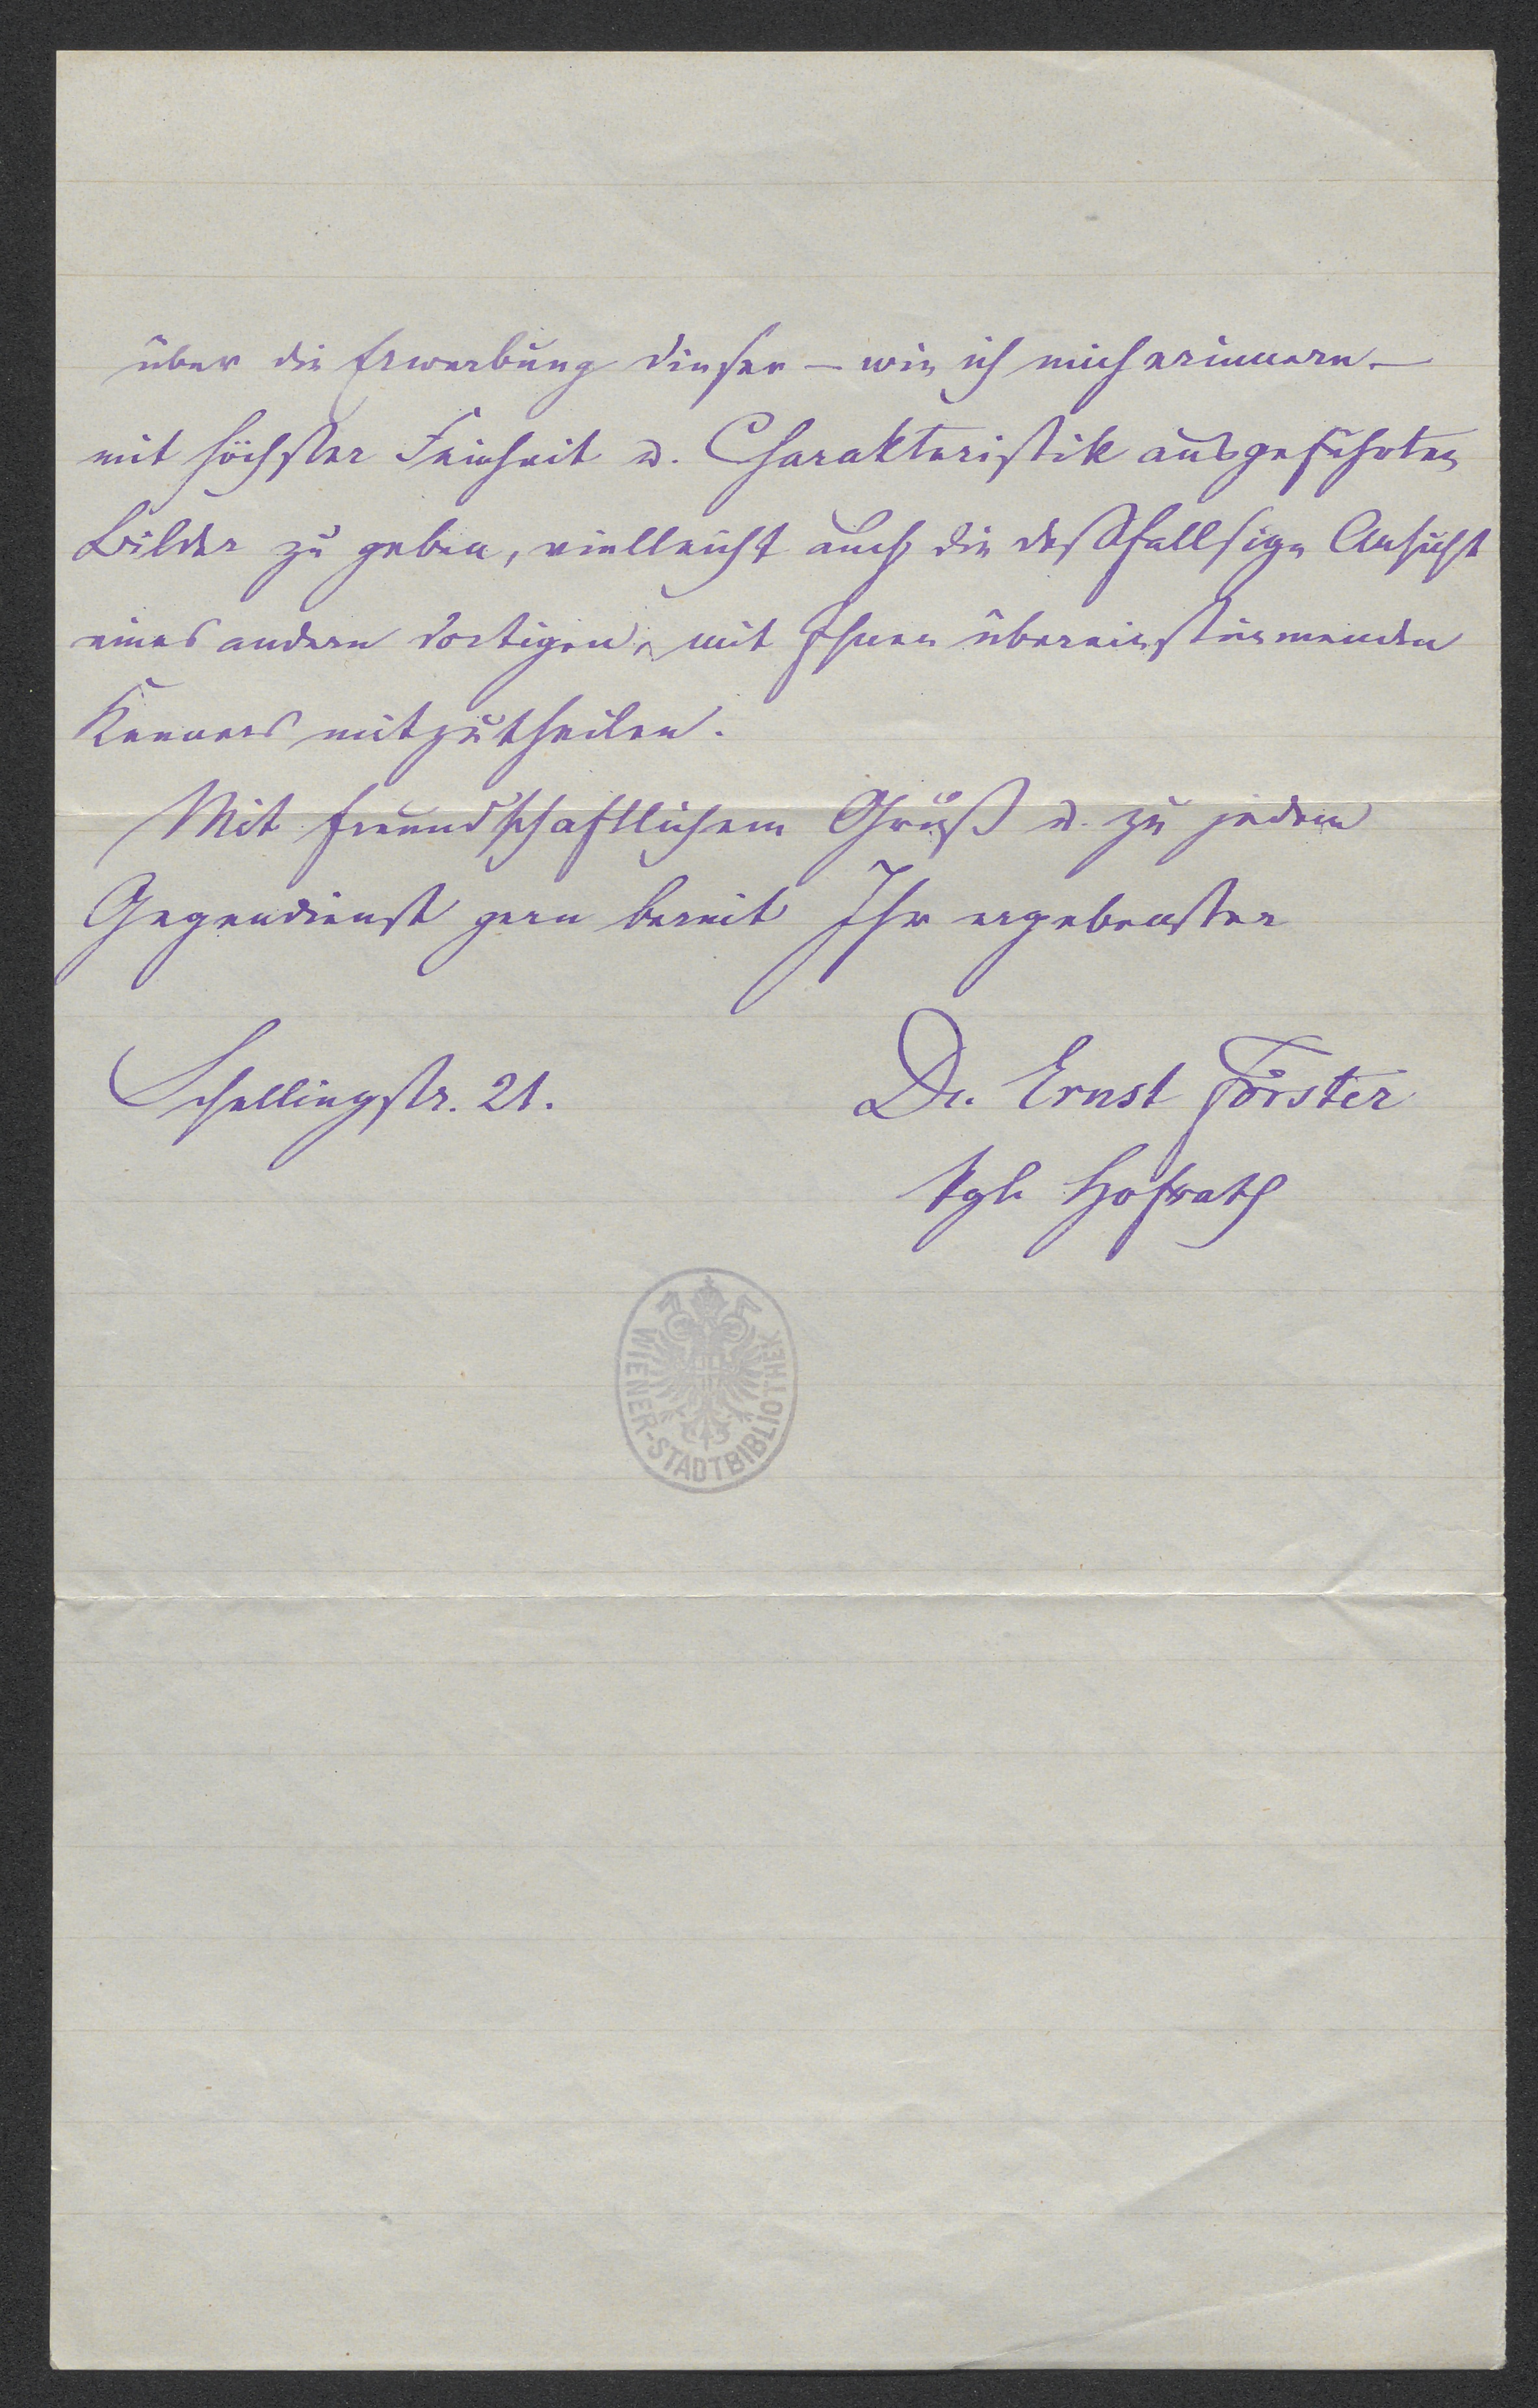 über die Erwerbung dieser – wie ich mich erinnere –
mit höchster Feinheit u. Charakteristik ausgeführten
Bilder zu geben, vielleicht auch die deßfallsige Ansicht
eines andern dortigen, mit Ihnen übereinstimmenden
Kenners mitzutheilen.
Mit freundschaftlichem Gruß u. zu jedem
Gegendienst gern bereit Ihr ergebenster
Schellingstr. 21.
Dr. Ernst Förster
kgl. Hofrath
WIENER-STADTBIBLIOTHEK